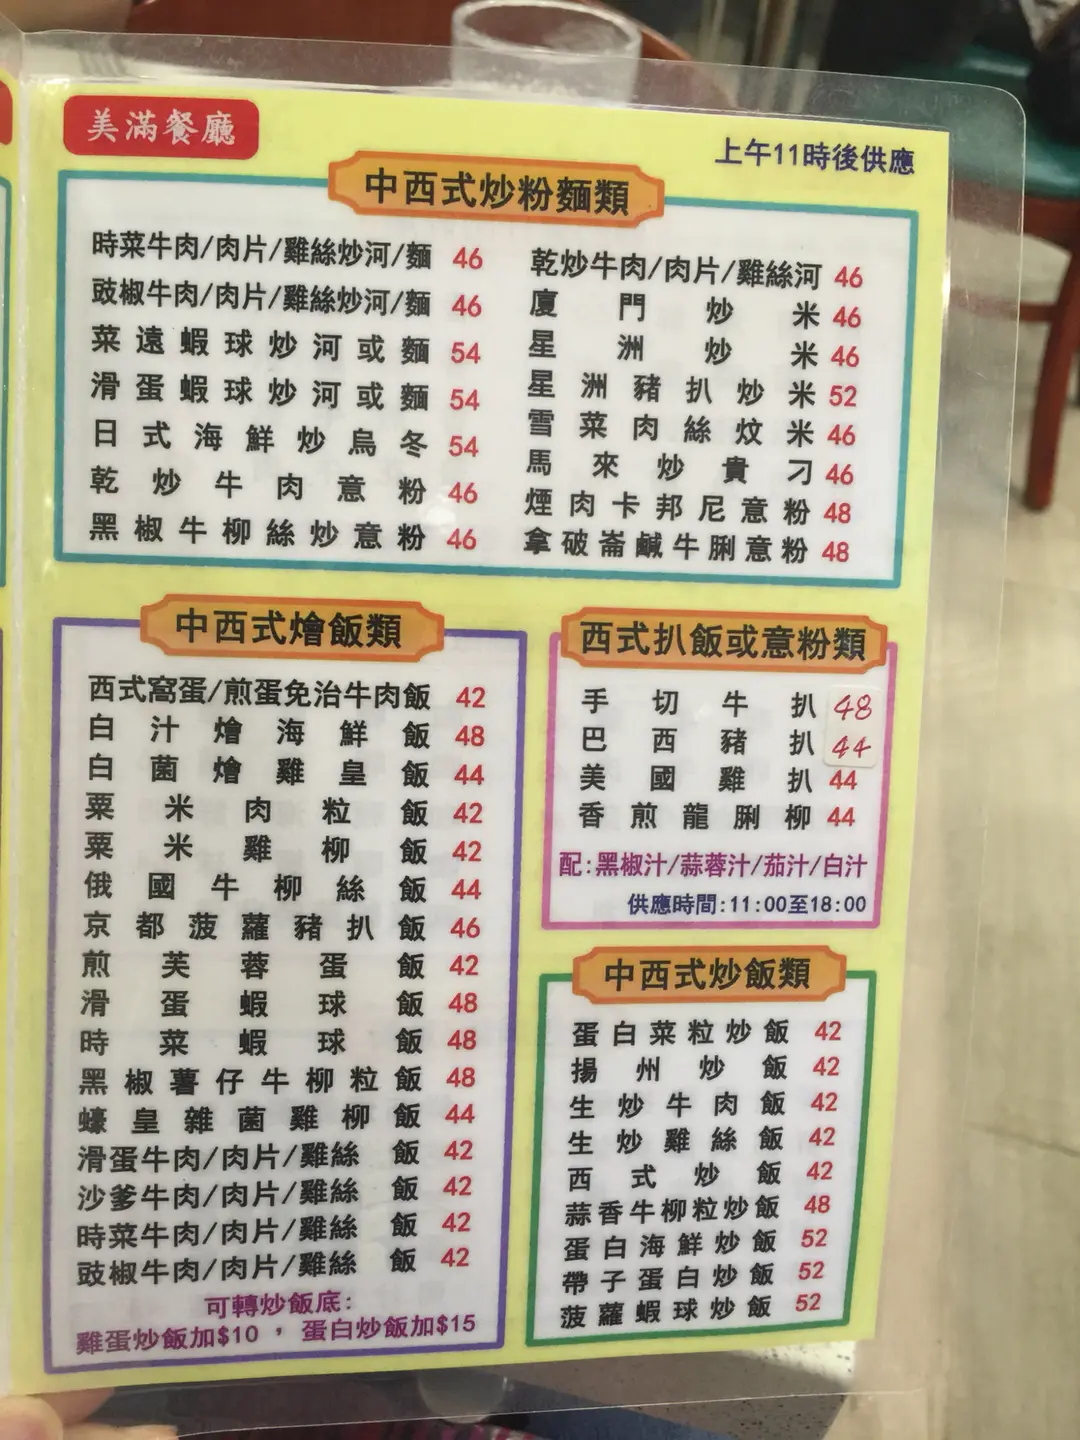 美滿餐廳
上午11時後供應
中西式炒粉麵類
時菜牛肉/肉片/雞絲炒河/麵 46
豉椒牛肉/肉片/雞絲炒河/麵 46
菜遠蝦球炒河或麵 54
滑蛋蝦球炒河或麵 54
日式海鮮炒烏冬 54
乾炒牛肉意粉 46
黑椒牛柳絲炒意粉 46
乾炒牛肉/肉片/雞絲河 46
廈門炒米 46
星洲炒米 46
星洲豬扒炒米 52
雪菜肉絲炆米 46
馬來炒貴刁 46
煙肉卡邦尼意粉 48
拿破崙鹹牛脷意粉 48
中西式燴飯類
西式窩蛋/煎蛋免治牛肉飯 42
白汁燴海鮮飯 48
白菌燴雞皇飯 44
粟米肉粒飯 42
粟米雞柳飯 42
俄國牛柳絲飯 44
京都菠蘿豬扒飯 46
煎芙蓉蛋飯 42
滑蛋蝦球飯 48
時菜蝦球飯 48
黑椒薯仔牛柳粒飯 48
蠔皇雜菌雞柳飯 44
滑蛋牛肉/肉片/雞絲飯 42
沙爹牛肉/肉片/雞絲飯 42
時菜牛肉/肉片/雞絲飯 42
豉椒牛肉/肉片/雞絲飯 42
可轉炒飯底:
雞蛋炒飯加$10，蛋白炒飯加$15
西式扒飯或意粉類
手切牛扒 48
巴西豬扒 44
美國雞扒 44
香煎龍脷柳 44
配:黑椒汁/蒜蓉汁/茄汁/白汁
供應時間:11:00至18:00
中西式炒飯類
蛋白菜粒炒飯 42
揚州炒飯 42
生炒牛肉飯 42
生炒雞絲飯 42
西式炒飯 42
蒜香牛柳粒炒飯 48
蛋白海鮮炒飯 52
帶子蛋白炒飯 52
菠蘿蝦球炒飯 52